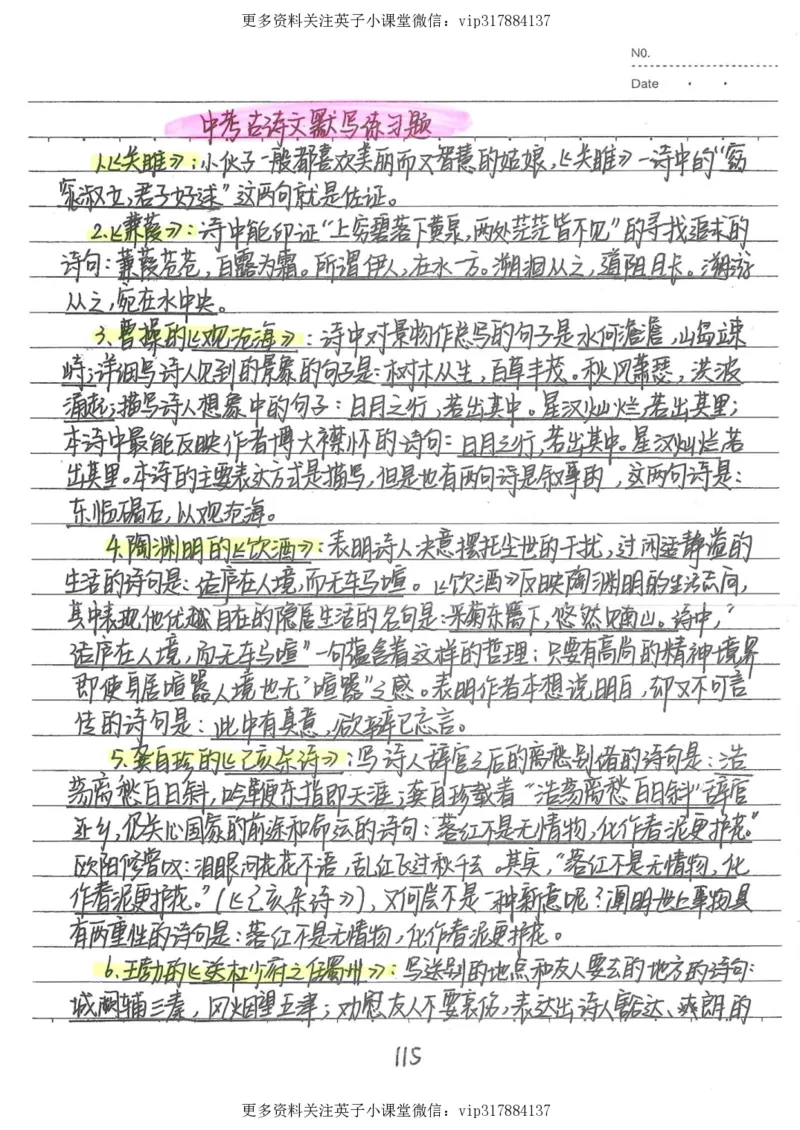 更多资料关注英子小课堂微信：vip317884137
NO.
Date
中考古诗文默写练习题
1.《关雎》：小伙子一般都喜欢美丽而又智慧的姑娘，《关雎》一诗中的“窈
窕淑女，君子好逑”这两句就是佐证。
2.《蒹葭》：诗中能印证“上穷碧落下黄泉，两处茫茫皆不见”的寻找追求的
诗句：蒹葭苍苍，白露为霜。所谓伊人，在水一方。溯洄从之，道阻且长。溯游
从之，宛在水中央。
3.曹操的《观沧海》：诗中对景物作总写的句子是水何澹澹，山岛竦
峙；详细写诗人见到的景象的句子是：树木从生，百草丰茂。秋风萧瑟，洪波
涌起；描写诗人想象中的句子：日月之行，若出其中。星汉灿烂，若出其里；
本诗中最能反映作者博大襟怀的诗句：日月之行，若出其中。星汉灿烂若
出其里。本诗的主要表达方式是描写，但是也有两句诗是叙事的，这两句诗是：
东临碣石，以观沧海。
4.陶渊明的《饮酒》：表明诗人决意摆托尘世的干扰，过闲适静谧的
生活的诗句是：结庐在人境，而无车马喧。《饮酒》反映陶渊明的生活志向，
其中表现他优越自在的隐居生活的名句是：采菊东篱下，悠然见南山。诗中，“
结庐在人境，而无车马喧”一句蕴含着这样的哲理：只要有高尚的精神境界
即使身居喧嚣人境也无“喧嚣”之感。表明作者本想说明白，却又不可言
传的诗句是：此中有真意，欲辨已忘言。
5.龚自珍的《己亥杂诗》：写诗人辞官之后的离愁别绪的诗句是：浩
荡离愁白日斜，吟鞭东指即天涯；龚自珍载着“浩荡离愁白日斜”辞官
还乡，仍关心国家的前途和命运的诗句：落红不是无情物，化作春泥更护花。”
欧阳修曾叹：泪眼问花花不语，乱红飞过秋千去。其实，“落红不是无情物，化
作春泥更护花。”（《己亥杂诗》），又何尝不是一种新意呢？阐明世上事物具
有两重性的诗句是：落红不是无情物，化作春泥更护花。
6.王勃的《送杜少府之任蜀州》：写送别的地点和友人要去的地方的诗句：
城阙辅三秦，风烟望五津；劝慰友人不要哀伤，表达出诗人豁达、爽朗的
115
更多资料关注英子小课堂微信：vip317884137